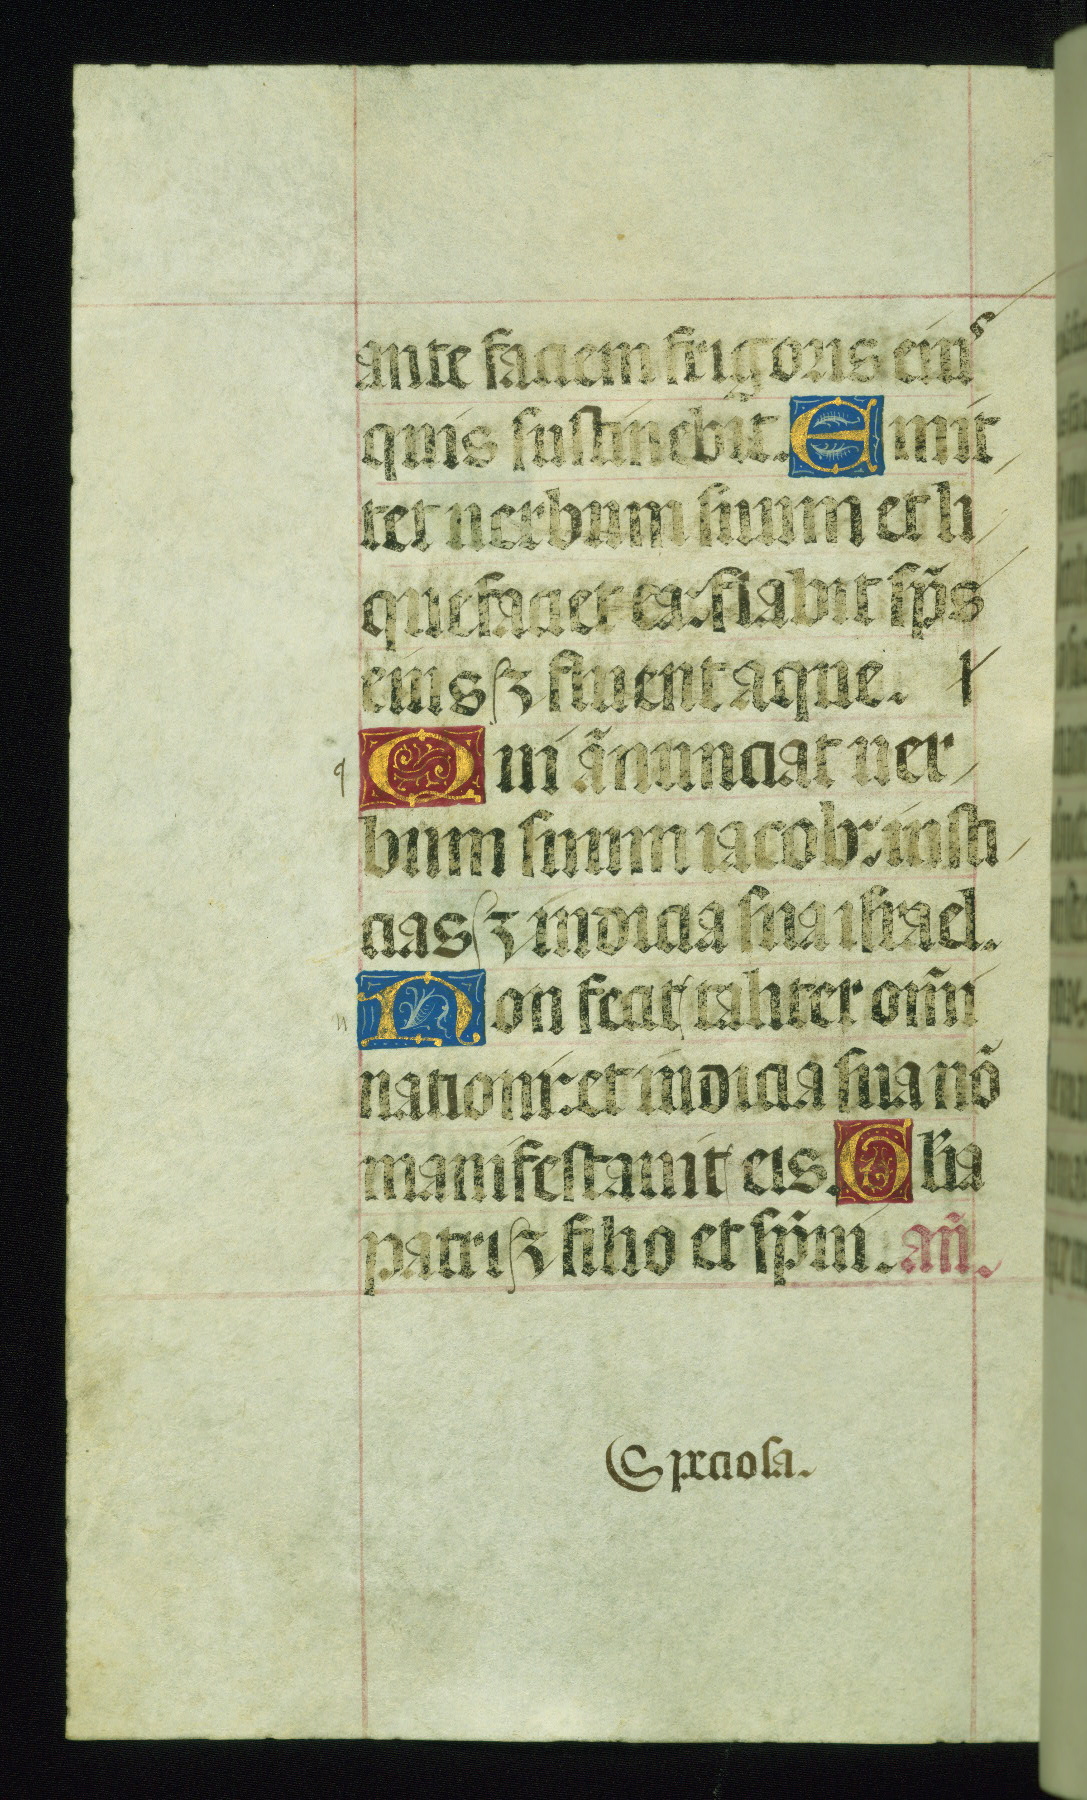 ante faciem frigoris eiuˢ
quis sustinebit. Emit
tet uerbum suum et li
quefaciet ea: flabit sp̄s
eius ꝫ fluent aque.
Qui ānunciat uer
bum suum iacob: iusti
cias ꝫ iudicia sua israel.
Non fecit taliter om̄i
nationi: et iudicia sua nō
manifestauit eis. Gl̄ia
patri ꝫ filio et sp̄ui. an̄.
Speciosa.